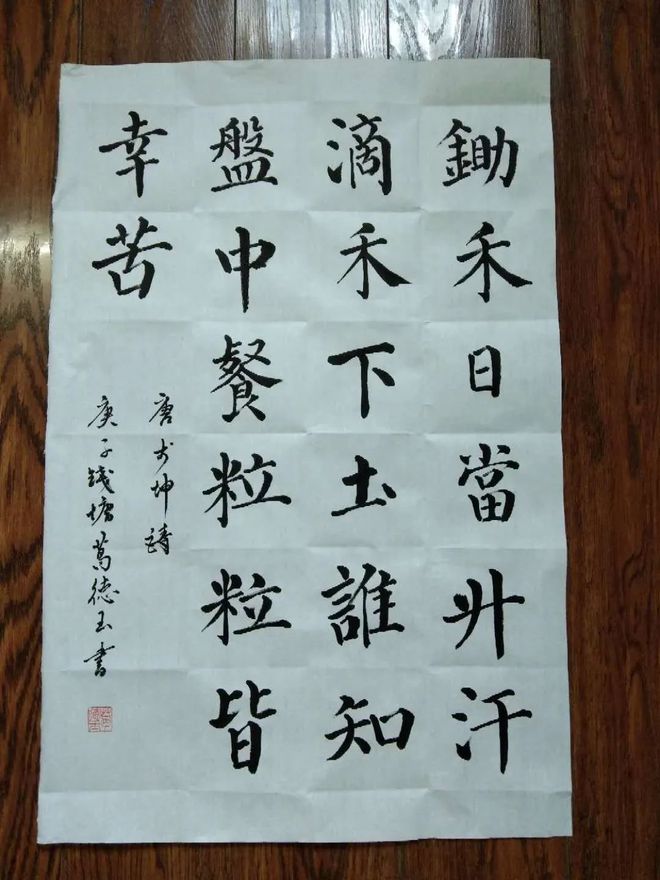 鋤禾日當廾汗
滴禾下土誰知
盤中餐粒粒皆
幸苦
唐李坤詩
庚子錢塘葛德玉書